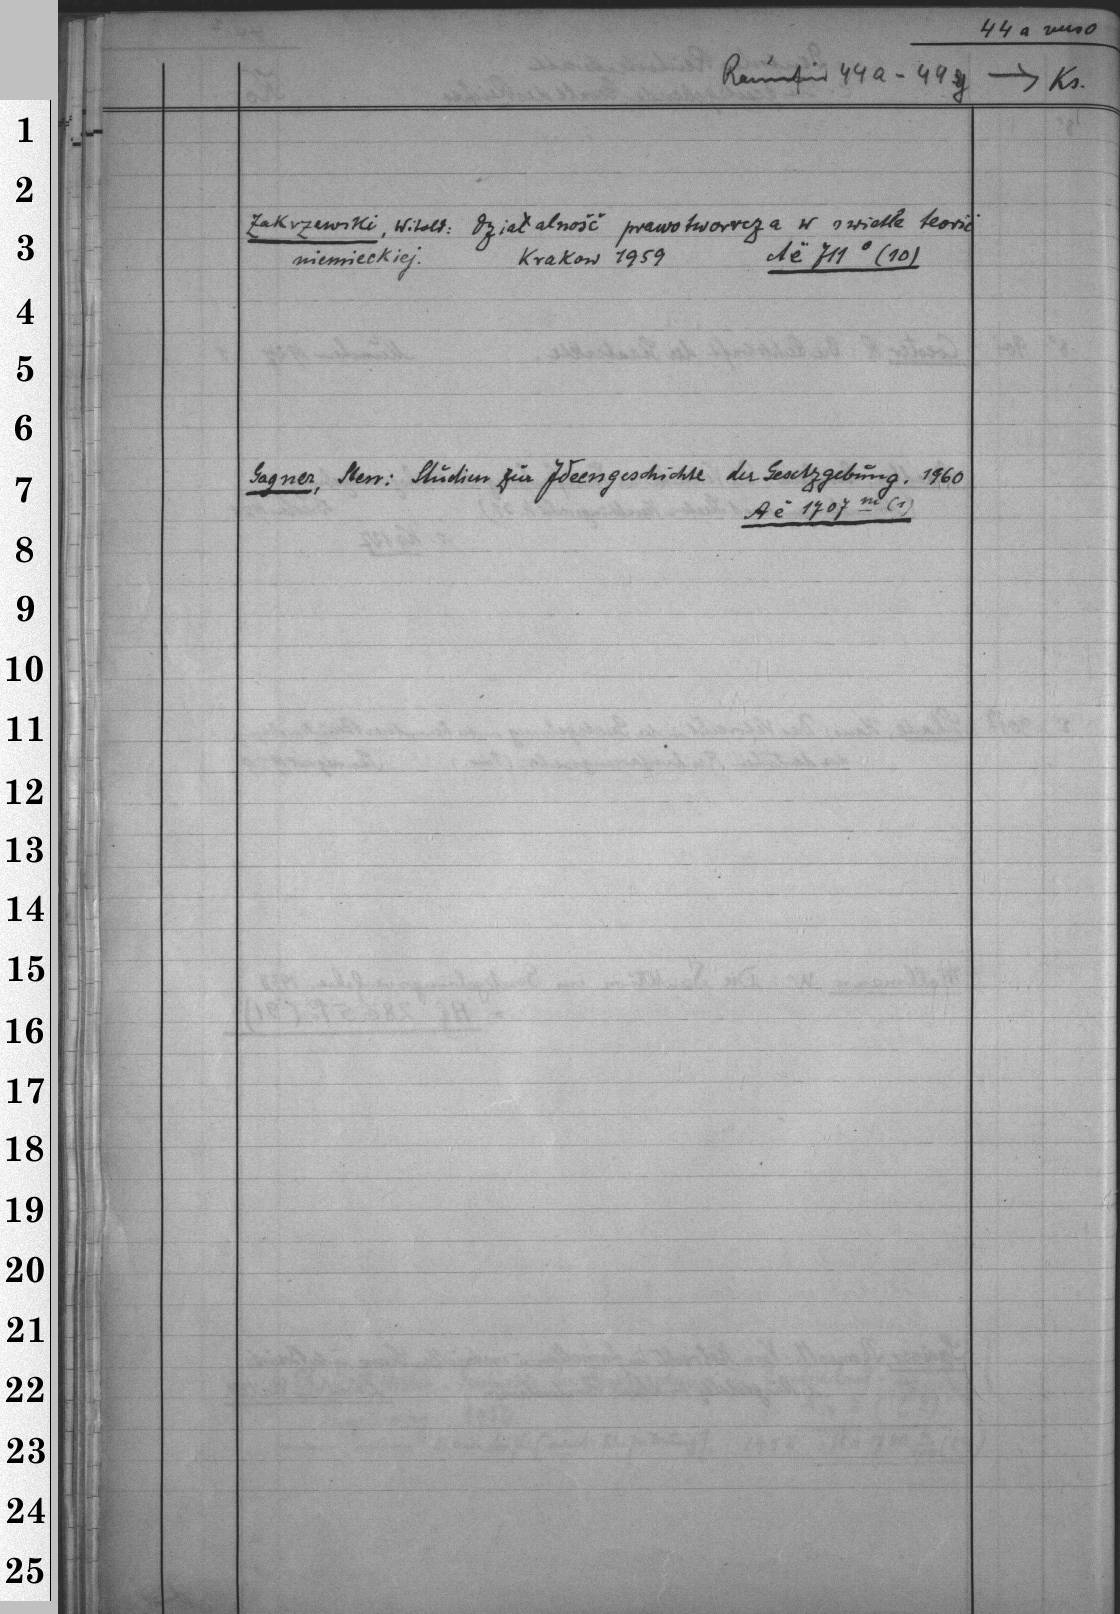 44a verso
44a - 44g → Ks.
1
2
Zakrzewski, Witold: Działalność prawotworcza w swietle teorii
3
niemieckiej. Krakow 1959 Aë 711 ° (10)
4
5
6
Gagner, Sten: Studien zur Ideengeschichte der Gesetzgebung. 1960
7
Aë 1707 m (1)
8
9
10
11
12
13
14
15
16
17
18
19
20
21
22
23
24
25